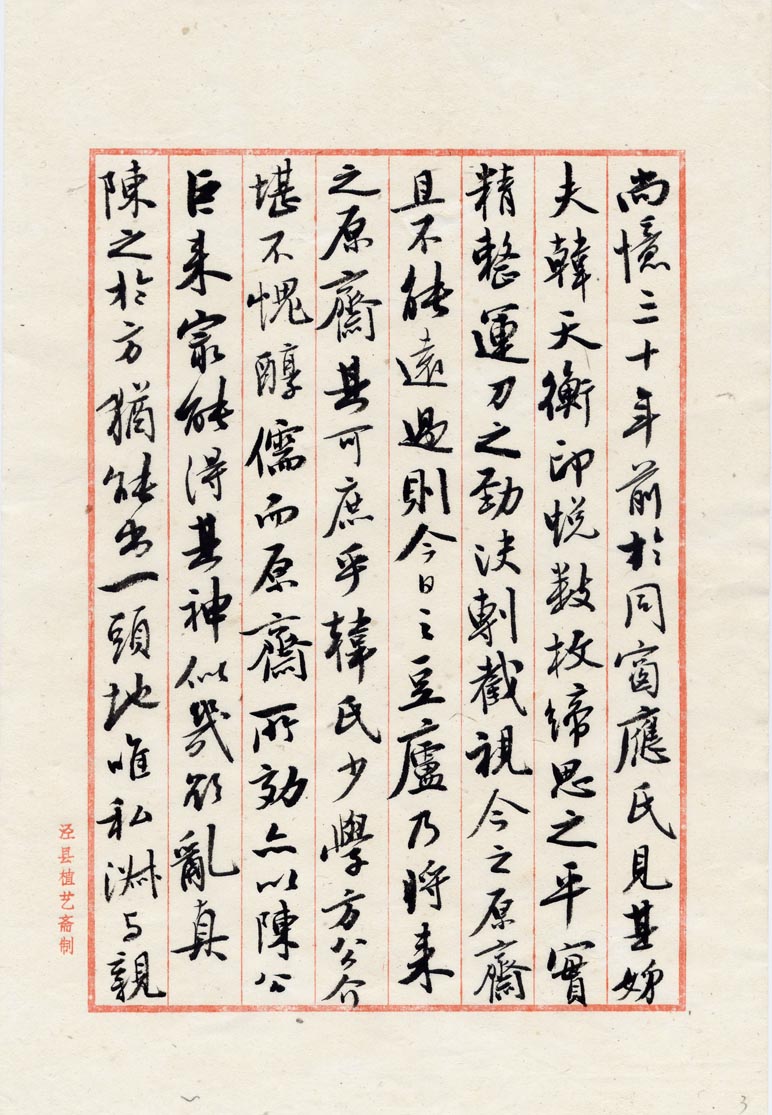 尚憶三十年前於同窗應氏見其姊
夫韓天衡印蜕数枚締思之平實
精整運刀之勁決剸截視今之原齋
且不能遠過則今日之豆廬乃將来
之原齋其可庶乎韓氏少學方公介
堪不愧醇儒而原齋所効亦以陳公
巨来宗能得其神似幾欲亂真
陳之於方猶能出一頭地唯私淑与親
泾县植艺斋制
3